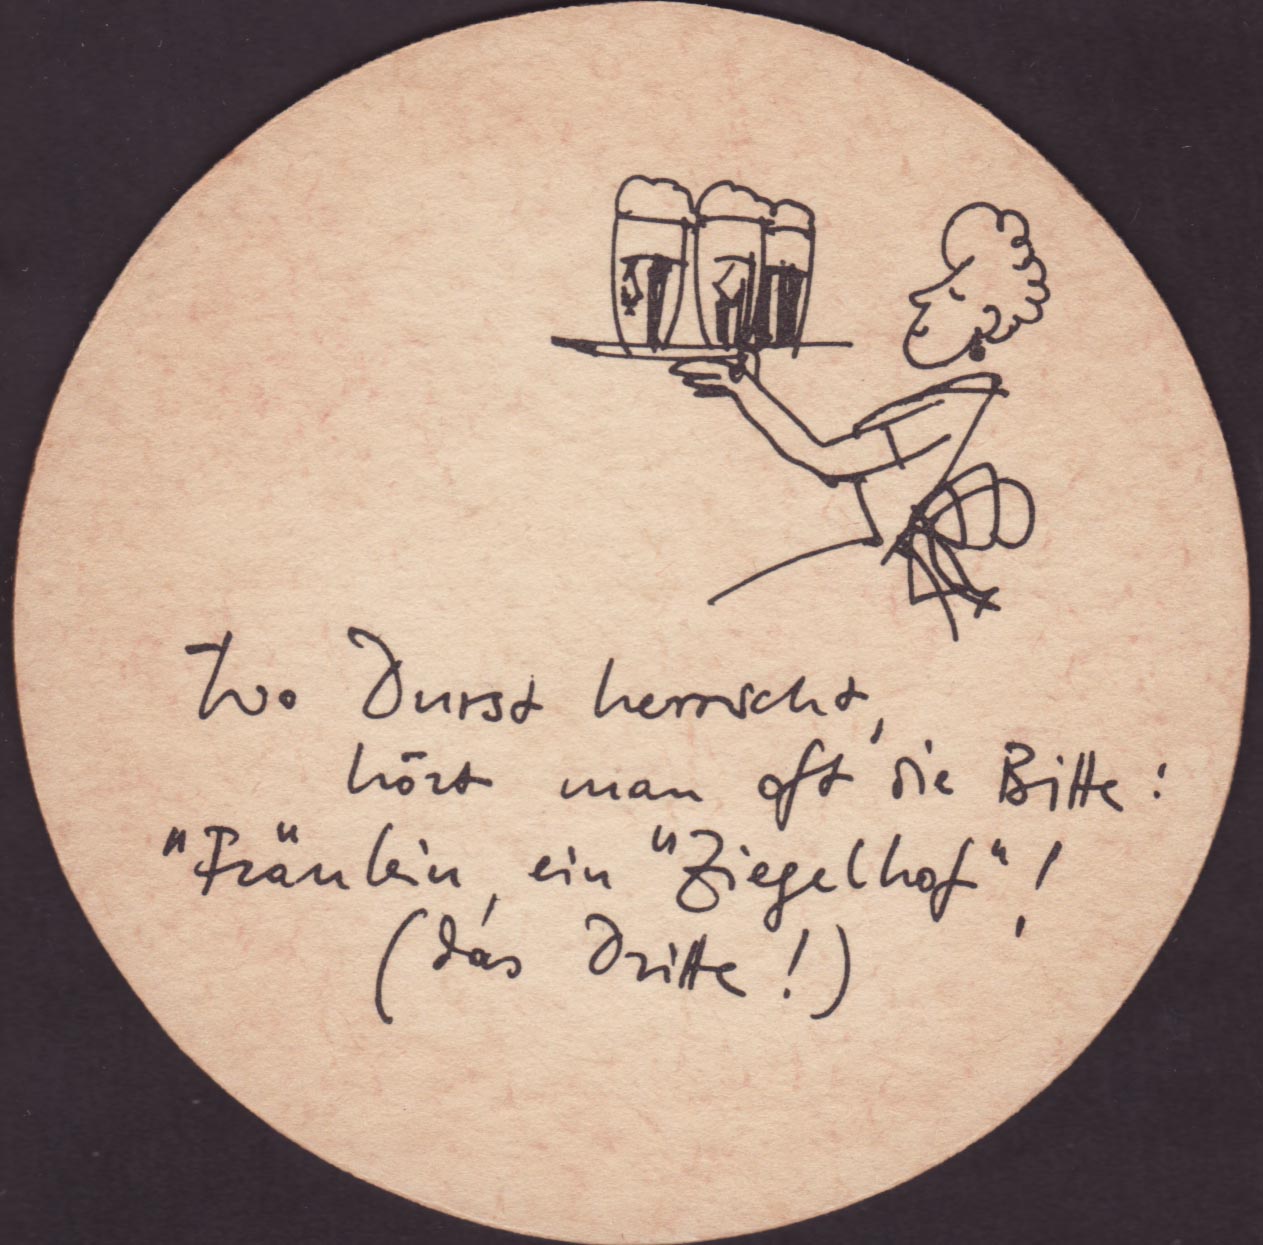 Wo Durst herrscht,
hört man oft die Bitte:
"Fräulein, ein "Ziegelhof"!
(das Dritte!)